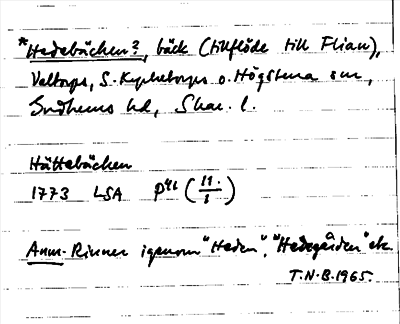 *Hedebäcken?, bäck (tillflöde till Flian),
Valtorps, S. Kyrketorps o. Högstena snr,
Gudhems hd, Skar. l.
Håttebäcken
1773 LSA P46 (11./1)
Anm. Rinner igenom "Heden", "Hedegården" etc.
T.N.B. 1965.